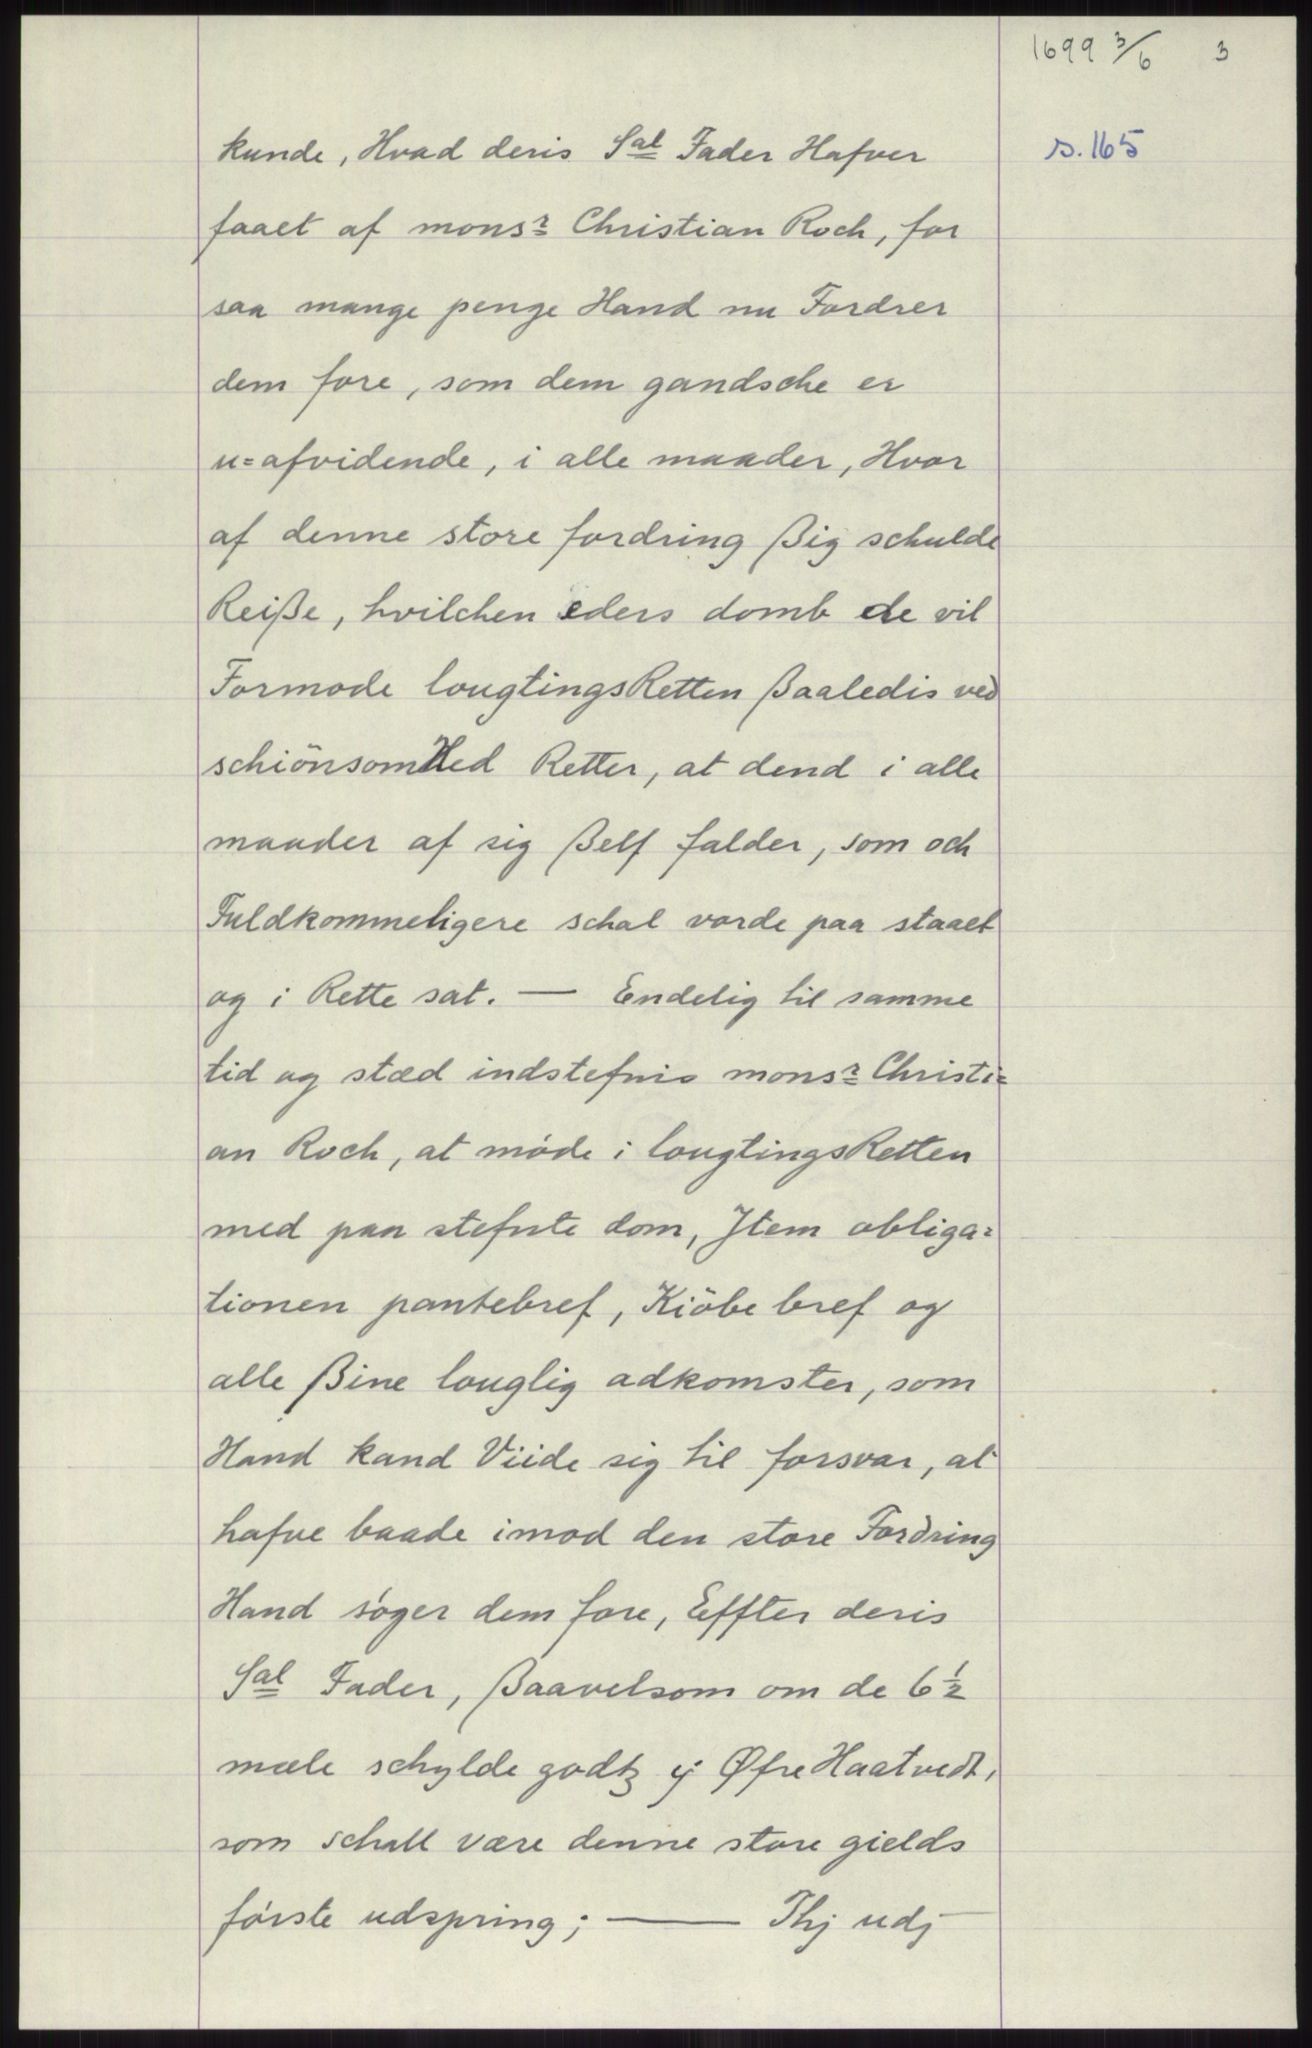 1699 3/6 3
s. 165
kunde, Hvad deris Sal Fader Hafver
faaet af monsr Christian Roch, for
saa mange penge Hand nu Fordrer
dem fore, som dem gandsche er
u=afvidende, i alle maader, Hvor
af denne store fordring ßig schulde
Reiße, hvilchen eders domb de vil
Formode lougtingsRetten ßaaledis ved
schiönsomHed Retter, at dend i alle
maader af sig ßelf falder, som och
Fuldkommeligere schal vorde paa staaet
og i Rette sat. — Endelig til samme
tid og stæd indstefnis monsr Christi=
an Roch, at móde i lougtingsRetten
med paa stefnte dom, Item obliga=
tionen pantebref, Kiöbe bref og
alle ßine louglig adkomster, som
Hand kand Viide sig til forsvar, at
hafve baade imod den store Fordring
Hand sóger dem fore, Effter deris
Sal Fader, ßaavelsom om de 6 1/2
mæle schylde godtz ij Øfre Haatvedt,
som schall være denne store gields
fórste udspring; — Thj udj